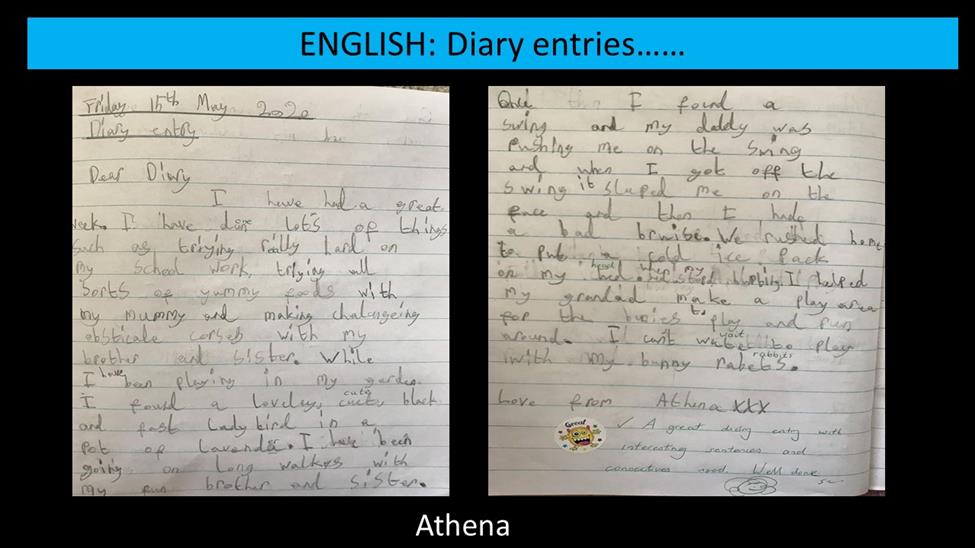 ENGLISH: Diary entries……
Friday 15th May 2020
Diary entry
Dear Diary
I have had a great
week. I have done lots of things
such as triying really hard on
my school work, triying all
sorts of yummy foods with
my mummy and making
obsticale with my
brother and sister. While
I have been playing in my garden
I found a Loveley, cute, black
and fast Lady bird in a
pot of Lavender. I have been
going on Long walkes with
my fun brother and sister.
I found a
swing and my daddy was
Pushing me on the Swing
and when I got off the
swing it slaped me on the
face and then I had
a bad bruise. We rushed home
to put a cold ice Pack
on my head. I helped
my grandad make a play area
for the bunies to play and run
around. I can't wait to play
with my bunny rabbits.
Love from Athena XXX
Great
✓ A great diary entry with
interesting sentences and
connectives used. Well done
Athena